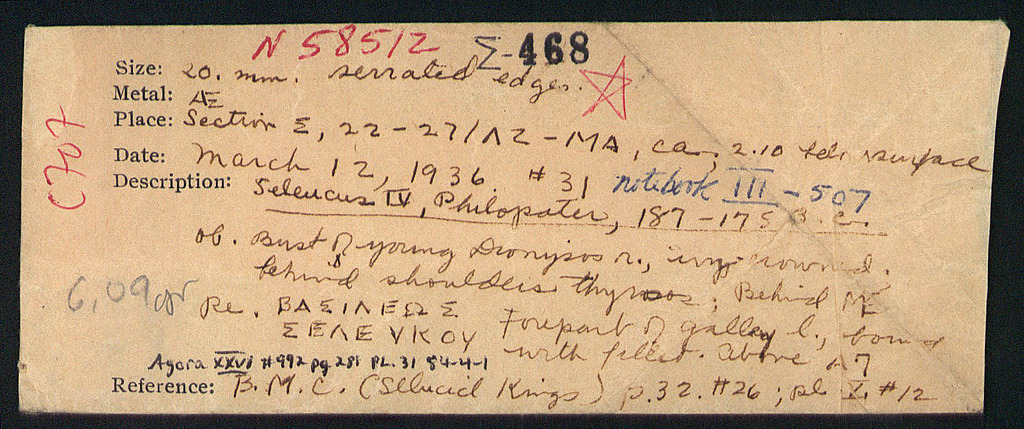 N 58512 Σ-468
Size: 20. mm. serrated edges.
Metal: Æ
C707
Place: Section Σ, 22-27/ΛΖ-ΜΑ, ca. 2.10 below surface
Date: March 12, 1936 #31 notebook III-507
Description: Seleucus IV, Philopater, 187-175 B.C.
ob. Bust of young Dionysos r., ivy-crowned.
behind shoulders thyrsos; Behind
6,09gr
Re. ΒΑΣΙΛΕΩΣ
ΣΕΛΕΥΚΟΥ Forepart of galley l., bound
with fillet. above
Agora XXVI #992 pg. 281 PL. 31 54-4-1
Reference: B.M.C. (Seleucid Kings) p.32. #26; pl. X, #12